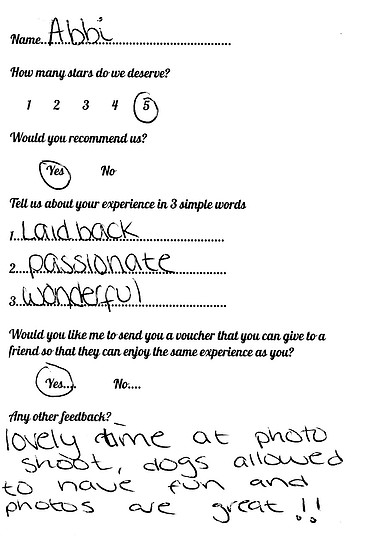 Name..Abbi
How many stars do we deserve?
1 2 3 4 5
Would you recommend us?
Yes No
Tell us about your experience in 3 simple words
1. Laid back
2. passionate
3. wonderful
Would you like me to send you a voucher that you can give to a
friend so that they can enjoy the same experience as you?
Yes.... No....
Any other feedback?
lovely time at photo
shoot, dogs allowed
to have fun and
photos are great !!